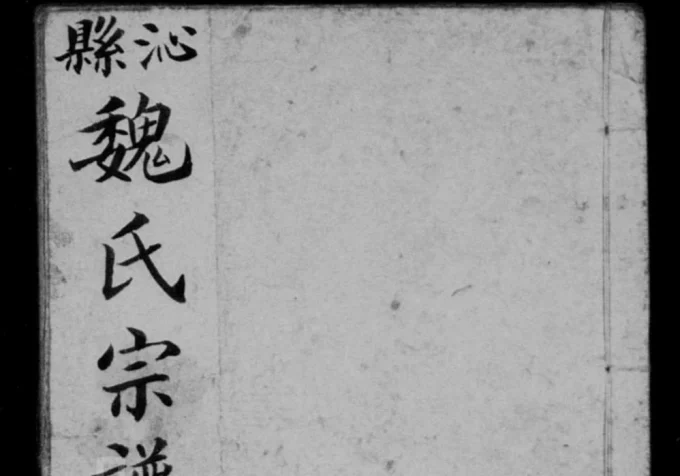 沁縣
魏氏宗譜